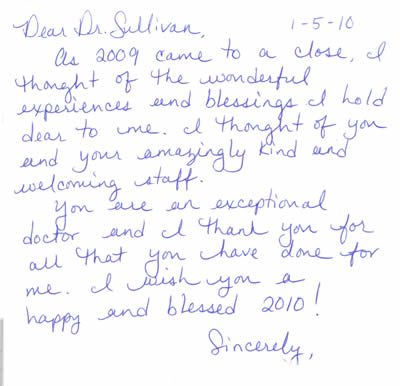 Dear Dr. Sullivan, 1-5-10
As 2009 came to a close, I
thought of the wonderful
experiences and blessings I hold
dear to me. I thought of you
and your amazingly kind and
welcoming staff.
You are an exceptional
doctor and I thank you for
all that you have done for
me. I wish you a
happy and blessed 2010!
Sincerely,